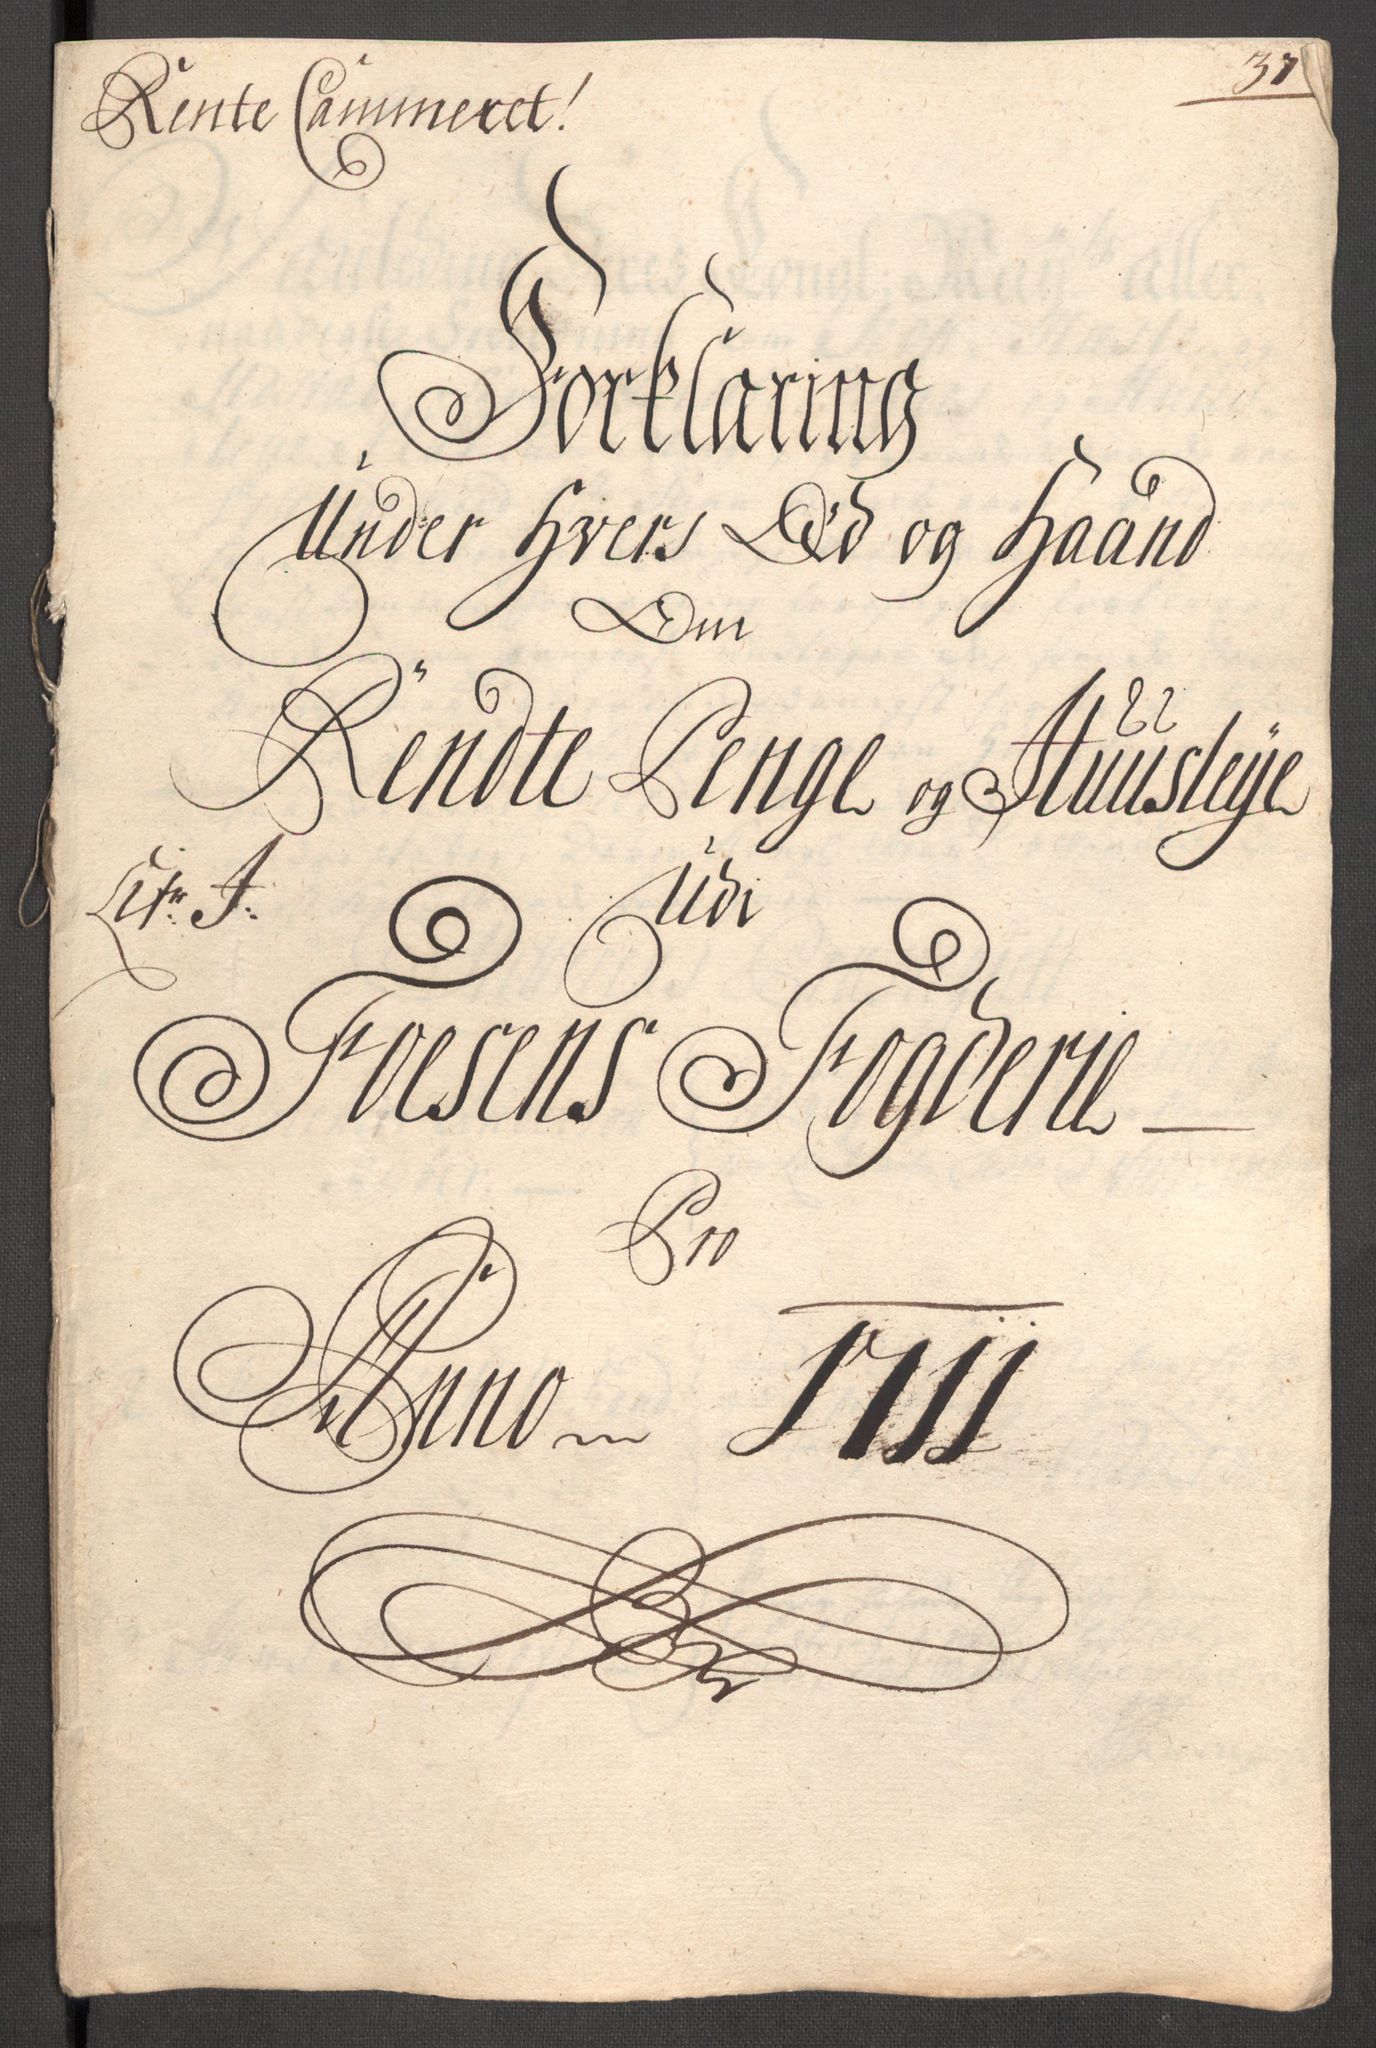 37
Rente Cammeret!
Forklaring
Under hvers Eed og Haand
Om
Rendte Penge og Huusleÿe
Litr: J:
Udi
Foesens Fogderie
Pro
Anno 1711